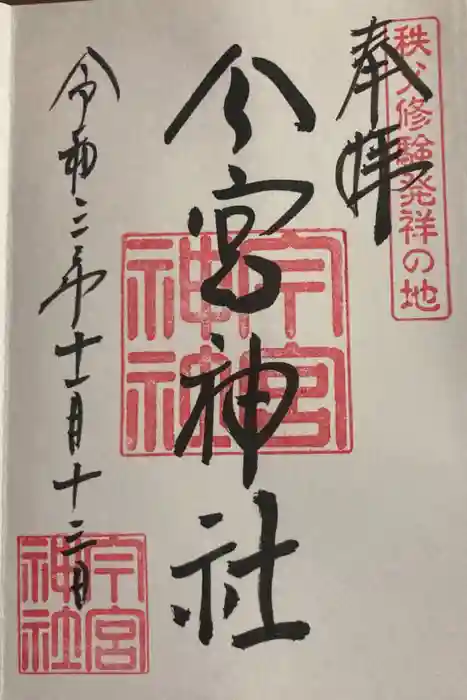 秩父修験発祥の地
奉拝
今宮神社
今宮神社
令和二年十一月十三日
今宮神社